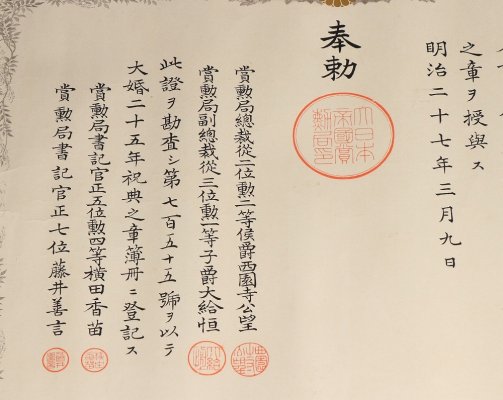 之章ヲ授與ス
明治二十七年三月九日
奉勅
大日本
帝國賞
勲局印
賞勲局總裁從二位勲二等侯爵西園寺公望
賞勲局副總裁從三位勲一等子爵大給恒
此證ヲ勘査シ第七百五十五號ヲ以テ
大婚二十五年祝典之章簿冊ニ登記ス
賞勲局書記官正五位勲四等横田香苗
賞勲局書記官正七位藤井善言